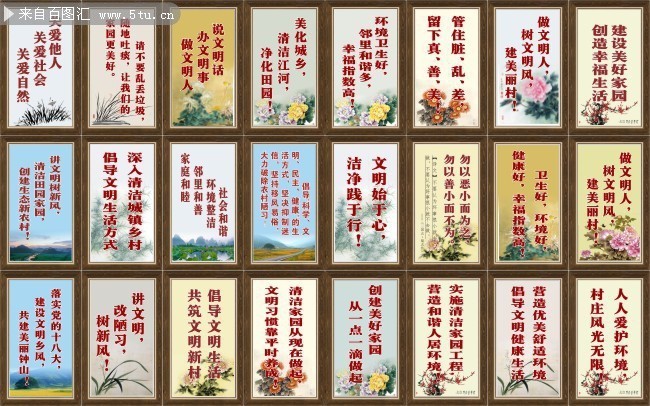 来自百图汇 www.5tu.cn
关爱他人
关爱社会
关爱自然
请不要乱丢垃圾，
随地吐痰，让我们的
家园更美好。
说文明话
办文明事
做文明人
美化城乡，
清洁江河，
净化田园！
环境卫生好，
邻里和谐多，
幸福指数高！
管住脏、乱、差，
留下真、善、美！
做文明人，
树文明风，
建美丽村！
建设美好家园
创造幸福生活
讲文明树新风、
清洁田园家园，
创建生态新农村！
深入清洁城镇乡村
倡导文明生活方式
社会和谐
环境整洁
邻里和善
家庭和睦
倡导科学、文
明、民主、健康的生
活方式，坚决抑制迷
信，坚持移风易俗，
大力破除农村陋习。
文明始于心，
洁净践于行！
勿以恶小而为之
勿以善小而不为
卫生好，环境好，
健康好，幸福指数高！
做文明人，
树文明风，
建美丽村！
落实党的十八大，
建设文明乡风，
共建美丽钟山！
讲文明，
改陋习，
树新风！
倡导文明生活
共筑文明新村
清洁家园从现在做起
文明习惯靠平时养成！
创建美好家园
从一点一滴做起
实施清洁家园工程
营造和谐人居环境！
营造优美舒适环境
倡导文明健康生活
人人爱护环境，
村庄风光无限！